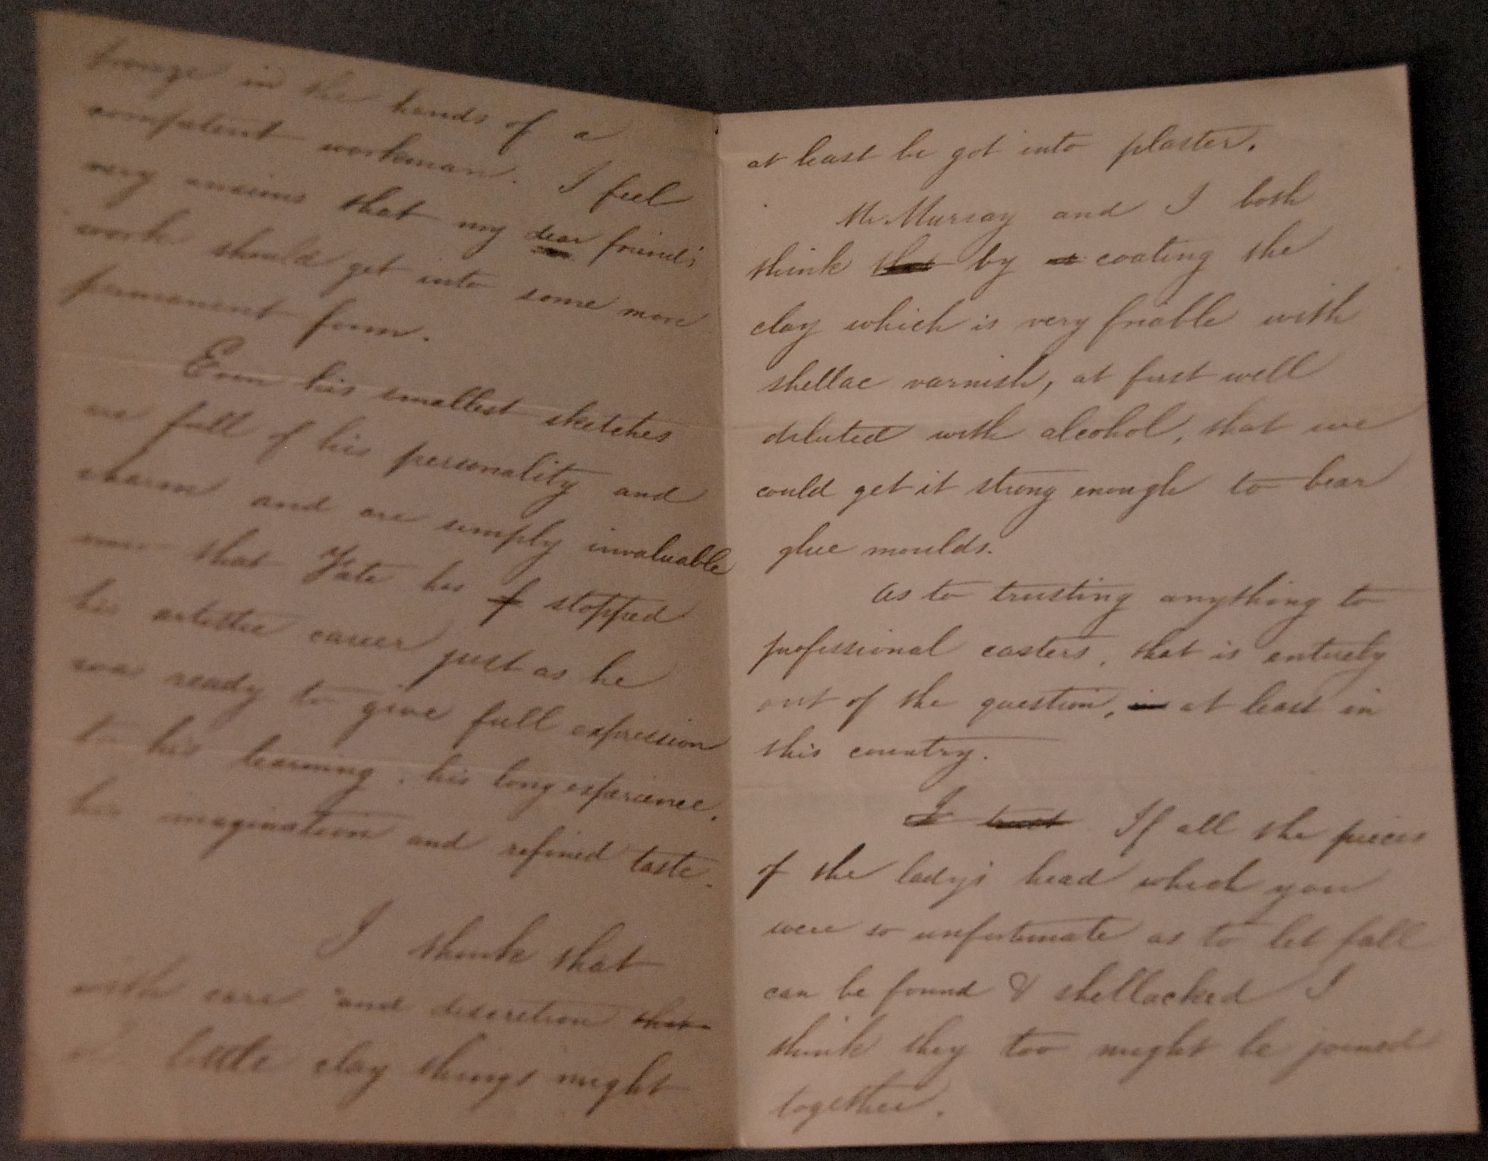 bronze in the hands of a
competent workman. I feel
very anxious that my dear friend's
work should get into some more
permanent form.
Even his smallest sketches
are full of his personality and
charm and are simply invaluable
now that Fate has stopped
his artistic career just as he
was ready to give full expression
to his learning, his long experience,
his imagination and refined taste.
I think that
with care and discretion that
little clay things might
at least be got into plaster.
Mr. Murray and I both
think that by a coating the
clay which is very friable with
shellac varnish, at first well
diluted with alcohol, that we
could get it strong enough to bear
glue moulds.
As to trusting anything to
professional casters, that is entirely
out of the question, in at least in
this country.
I trust If all the pieces
of the lady's head which you
were so unfortunate as to let fall
can be found & shellacked I
think they too might be joined
together.